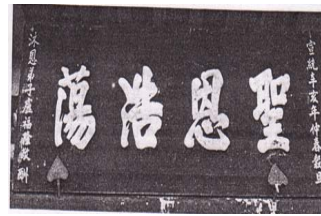 宣統辛亥年仲春穀旦
聖恩浩蕩
沐恩弟子盧福隆敬酬